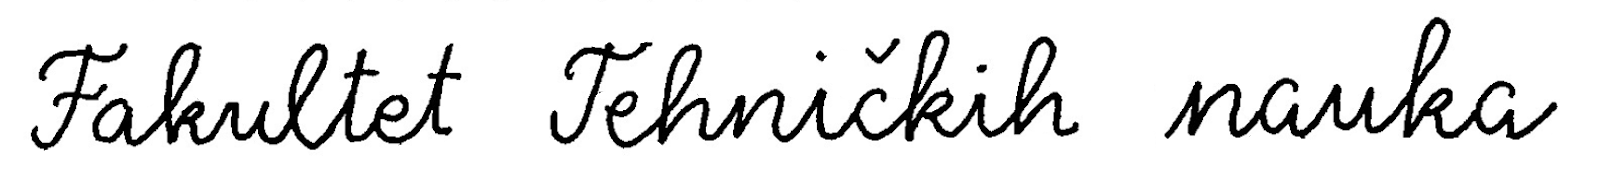 Fakultet Tehničkih nauka